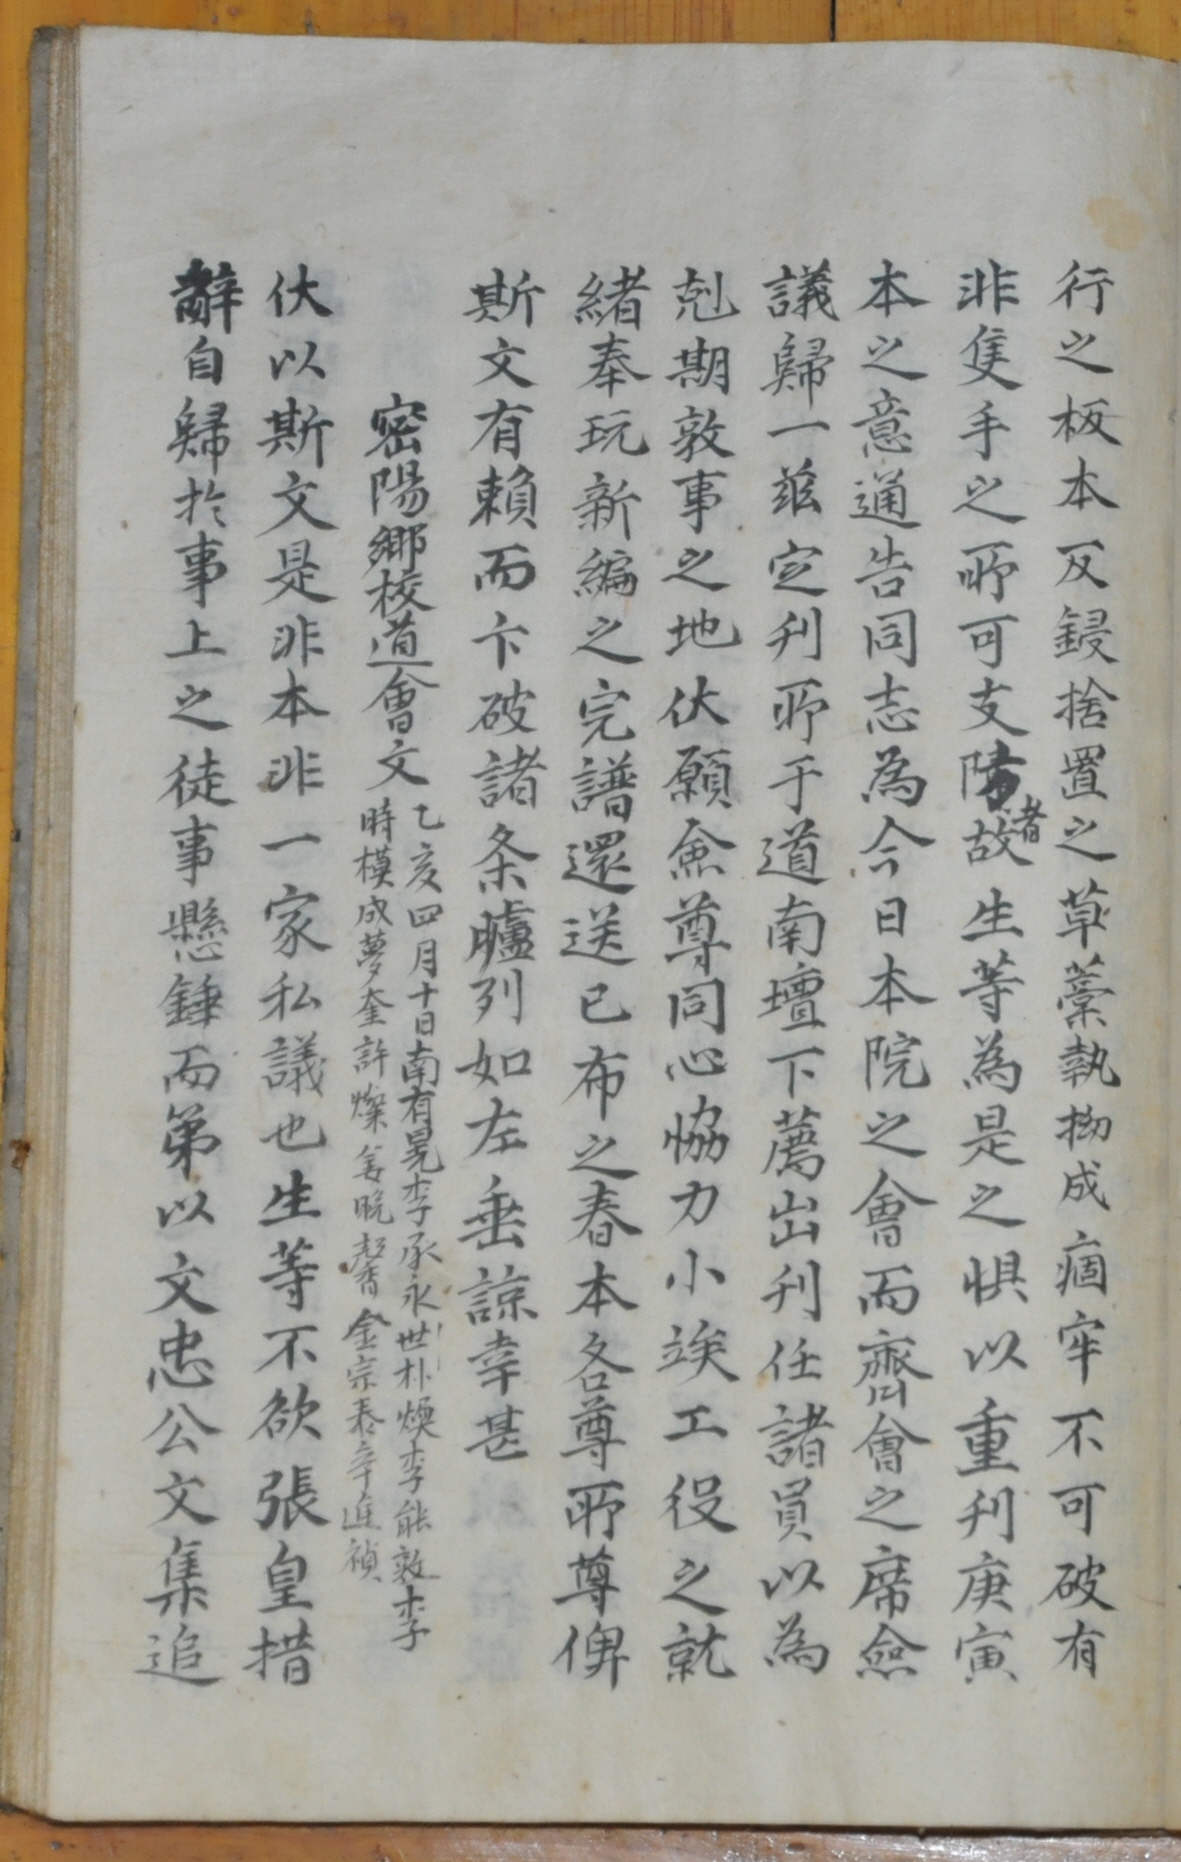 行之板本反鋟捨置之草藁執拗成痼牢不可破有
非隻手之所可支障者故生等爲是之惧以重刊庚寅
本之意通告同志爲今日本院之會而齊會之席僉
議歸一玆定刊所于道南壇下薦出刊任諸員以爲
剋期敦事之地伏願僉尊同心恊力小竢工役之就
緒奉玩新編之完譜還送已布之春本各尊所尊俾
斯文有賴而卞破諸条臚列如左垂諒幸甚
密陽鄕校道會文
乙亥四月十日南有晃李承永世朴煥李能敦李
時模成夢奎許燦姜晩馨金宗泰辛進禎
伏以斯文是非本非一家私議也生等不欲張皇措
辭自歸於事上之徒事懸錘而第以文忠公文集追